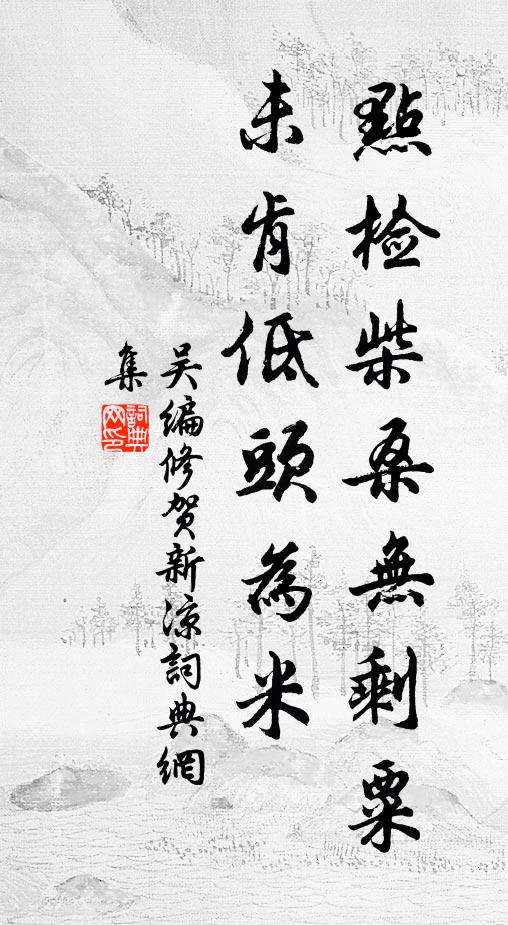 點檢柴桑無剩粟
未肯低頭為米
吴編修賀新涼詞典網
集
詞典
网印